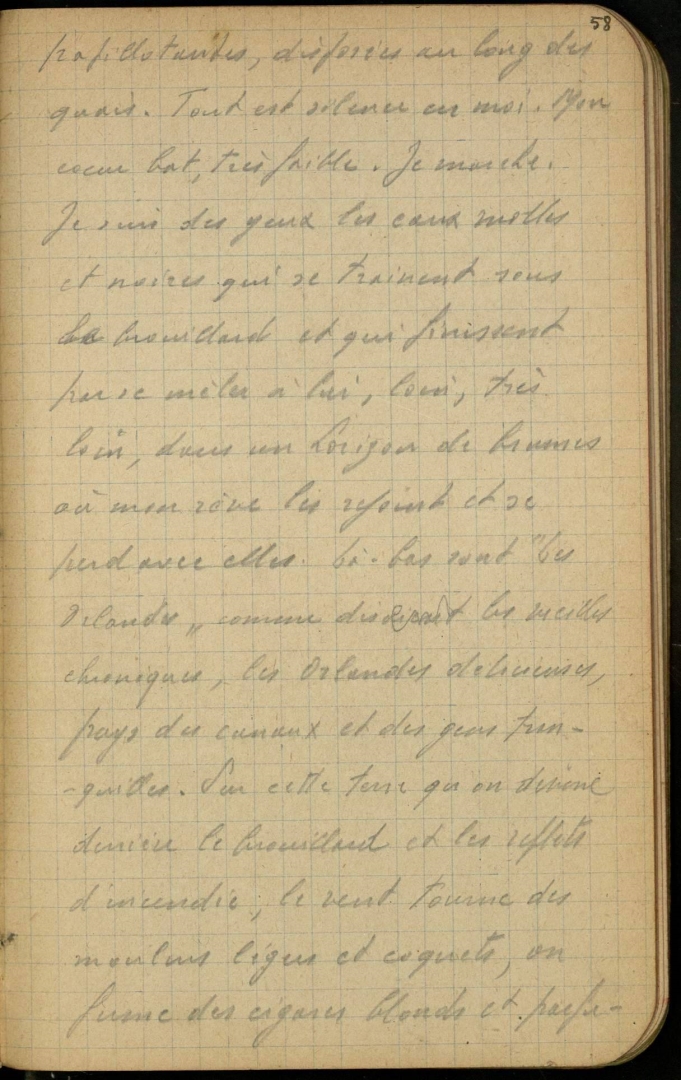 58
papillotantes, disposées au long des
quais. Tout est silence en moi. Mon
cœur bat, très faible. Je marche.
Je suis des yeux les eaux molles
et noires qui se trainent sous
le brouillard et qui finissent
par se mêler à lui, loin, très
loin, dans un horizon de brumes
où mon rêve les rejoint et se
perd avec elles. Là-bas sont "les
Orlandes„ comme disaient les vieilles
chroniques, les Orlandes delicieuses,
pays des canaux et des gens tran-
-quilles. Sur cette terre qu'on devine
derrière le brouillard et les reflets
d'incendie, le vent tourne des
moulins légers et coquets, on
fume des cigares blonds et parfu-